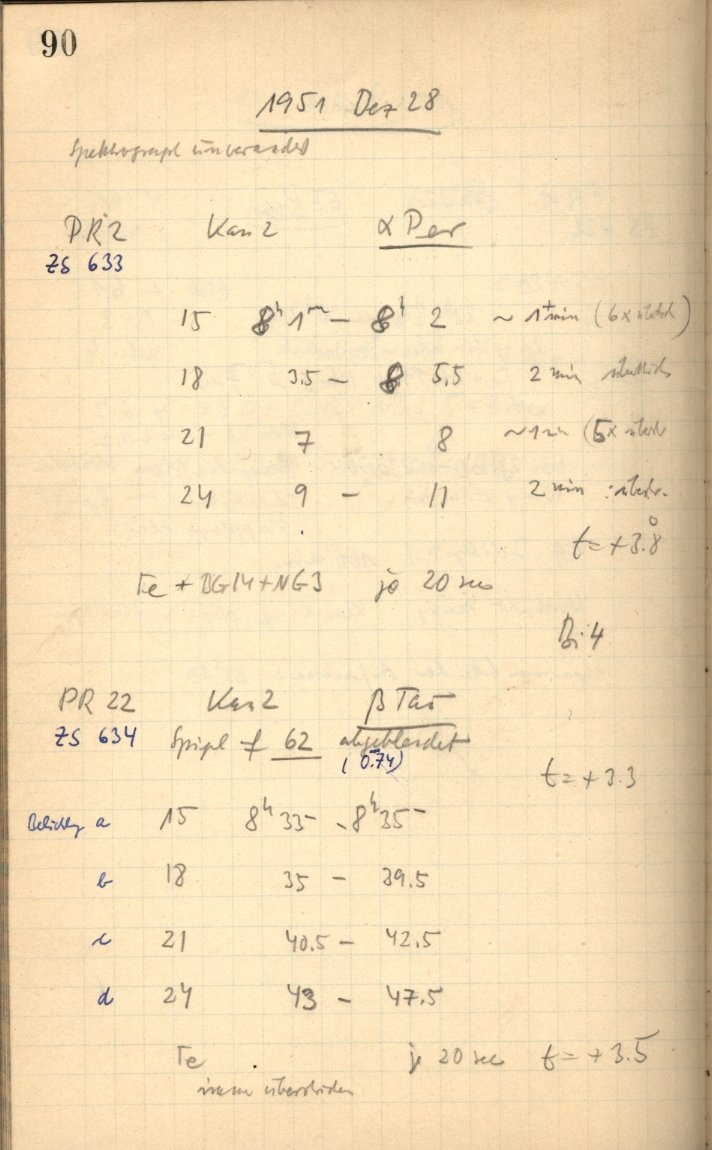 90
1951 Dez 28
Spektrograph unverändert
PR 2 Kas 2 α Per
ZS 633
15 8h 1m – 8h 2 ~ 1+ min (6x
18 3.5 – 8 5,5 2 min
21 7 8 ~ 1 min (5x
24 9 – 11 2 min
t = +3.8°
Fe + BG14 + NG3 je 20 sec
Bi 4
PR 22 Kas 2 β Tau
ZS 634 Spiegel f 62 abgeblendet
(0.74)
t = +3.3
Belichtg a 15 8h 33 – 8h 35
b 18 35 – 39.5
c 21 40.5 – 42.5
d 24 43 – 47.5
Fe je 20 sec t = +3.5